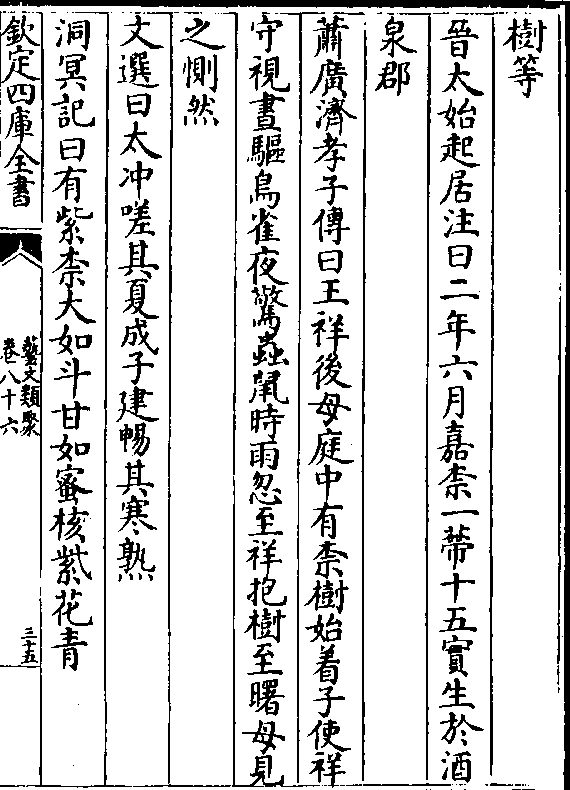 樹等
晉太始起居注曰二年六月嘉柰一蔕十五實生於酒
泉郡
蕭廣濟孝子傳曰王祥後母庭中有柰樹始着子使祥
守視晝驅鳥雀夜驚蟲䑕時雨忽至祥抱樹至曙母見
之惻然
文選曰太冲嗟其夏成子建暢其寒熟
洞冥記曰有紫柰大如斗甘如蜜核紫花青
欽定四庫全書
藝文類聚
卷八十六
三十五